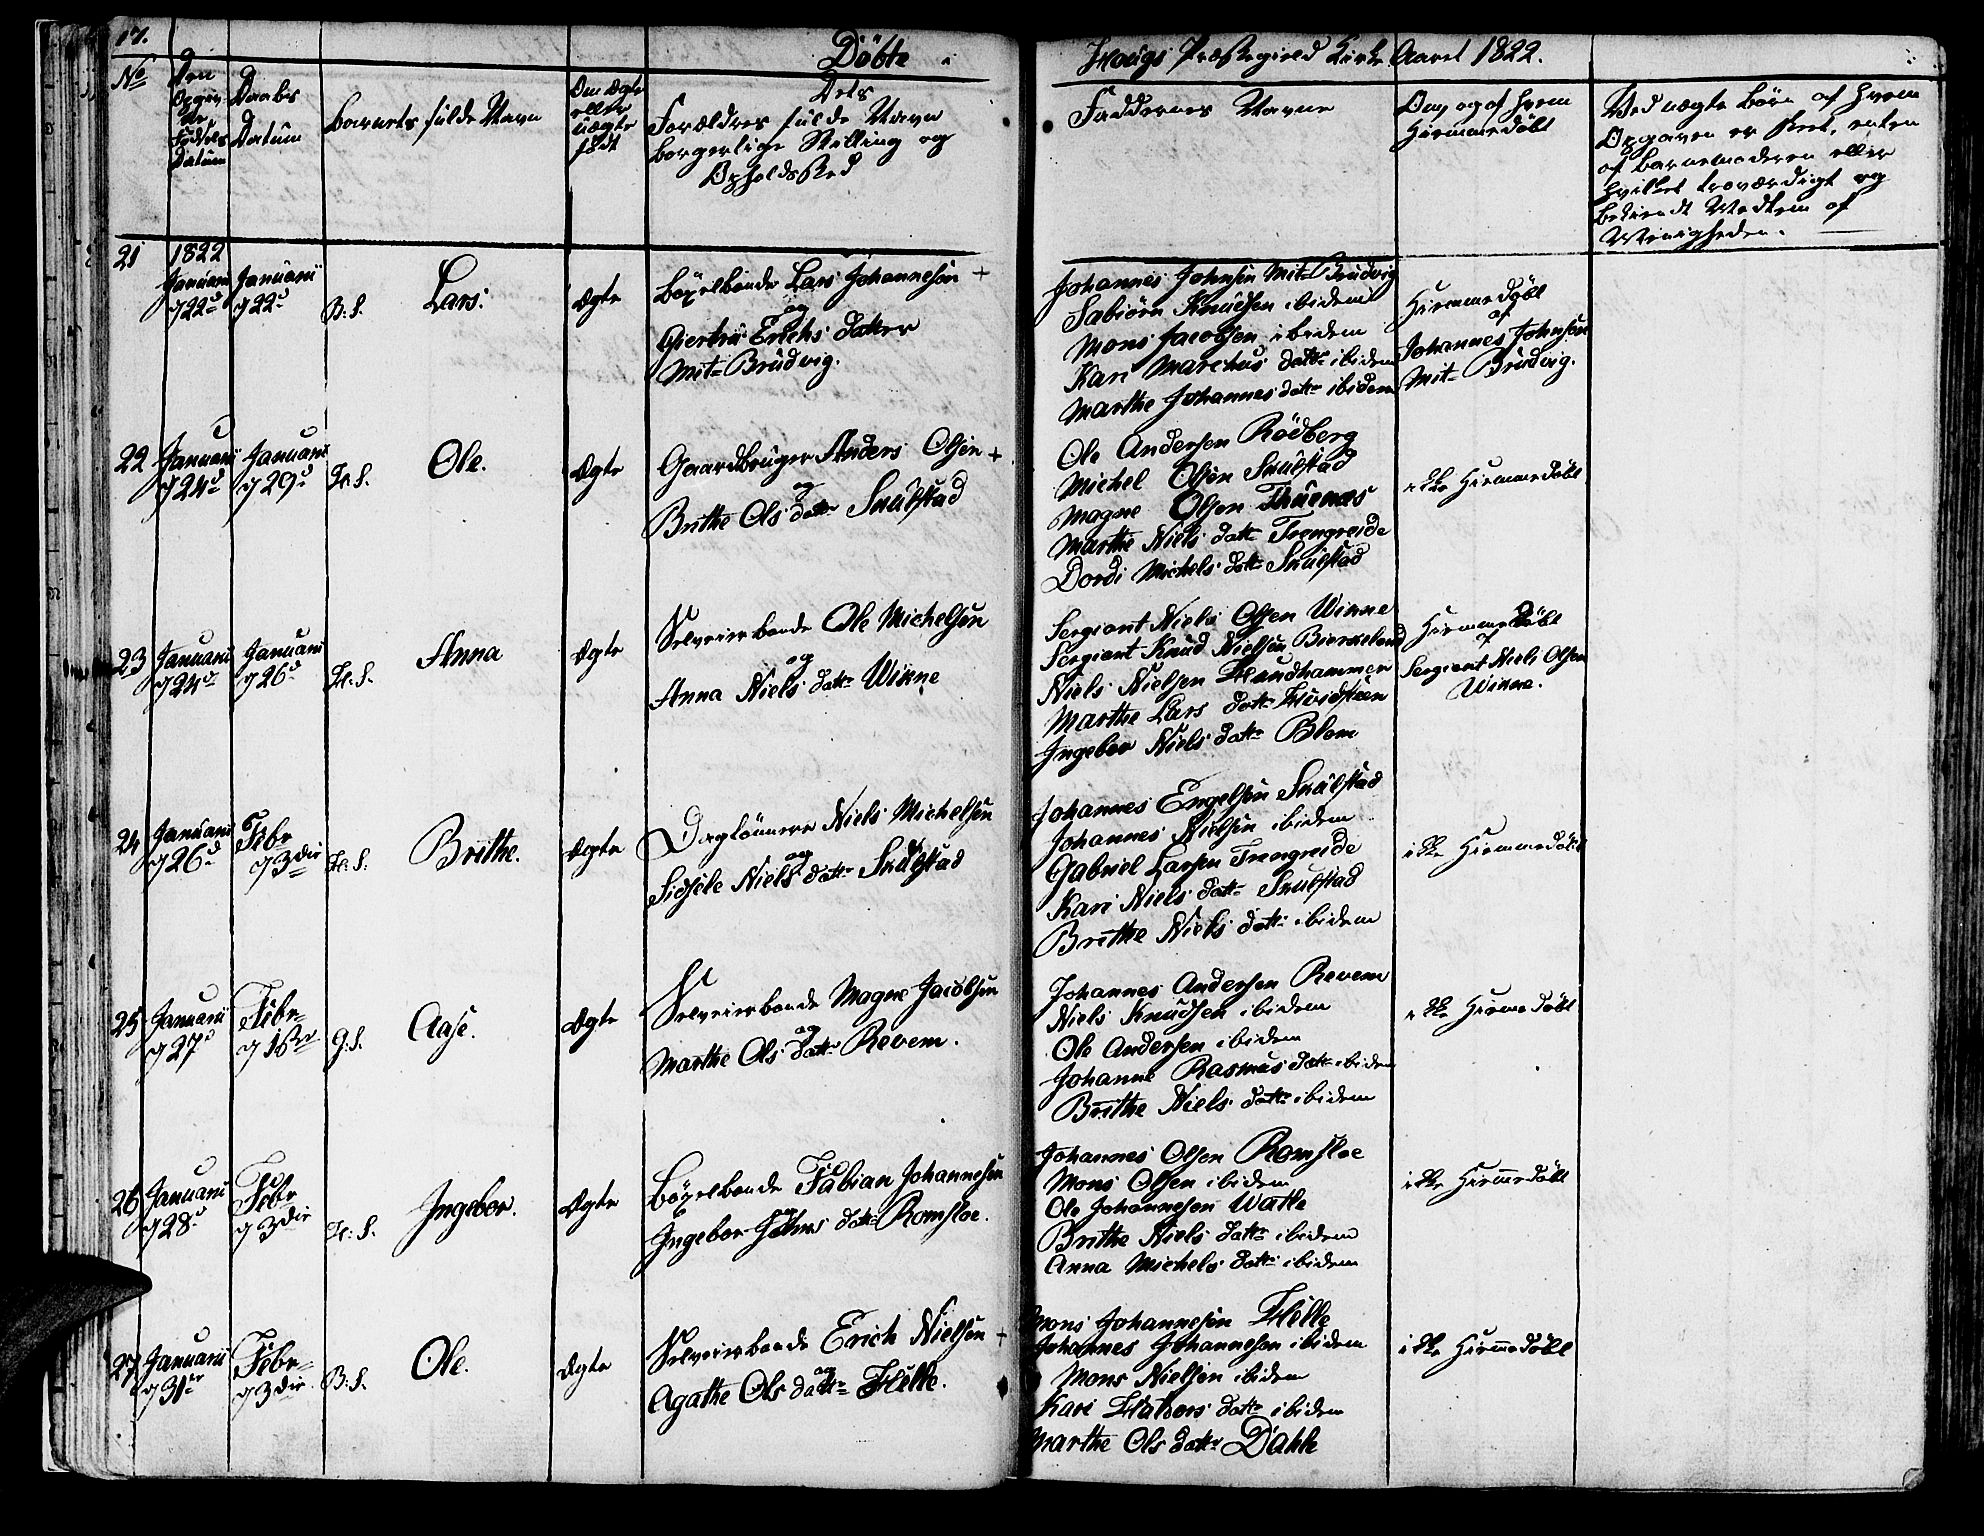 17.
Döbte
Hougs Præstegield Kirke Aaret 1822.
No
Den Opgivne Fødsels Datum
Daabs Datum
Barnets fulde Navn
Om Ægte eller uægte født
Dets
Forældres fulde Navn
borgerlige Stilling og
Opholdssted
Faddernes Navne
Om, og af hvem
Hiemmedøbt
Ved uægte børn af hvem
Opgaven er skeet, enten
af barnemoderen eller
hvilket troværdigt og
bekiendt Medlem af
Menigheden.
21
1822
Januarii
d 22d
Januarii
d 22d
B: S.
Lars.
Ægte
Bøxelbonde Lars Johannesøn +
og
Giertru Erichs datter
Mit-Brudvig.
Johannes Johnsøn Mit-Brudvig
Sabiørn Knudsen ibidem
Mons Jacobsen ibidem
Kari Marchus datter ibidem
Marthe Johannes datter ibidem
Hiemmedøbt
af
Johannes Johnsøn
Mit-Brudvig.
22
Januarii
d 24d
Januarii
d 29d
H: S.
Ole.
Ægte
Gaardbruger Anders Olsen +
og
Brithe Ols datter Skulstad
Ole Andersen Rödberg
Michel Olsen Skulstad
Magne Olsen Thuenæs
Marthe Niels datter Trengreide
Dordi Michels datter Skulstad
ikke Hiemmedøbt
23
Januarii
d 24d
Januarii
d 26d
H: S.
Anna
Ægte
Selveierbonde Ole Michelsen
og
Anna Niels datter Winne
Sergiant Niels Olsen Winne
Sergiant Knud Nielsen Bierkeland
Niels Nielsen Hundhammer
Marthe Lars datter Hvidsteen
Ingebor Niels datter Blom
Hiemmedøbt
af
Sergiant Niels Olsen
Winne.
24
Januarii
d 26d
Febr
d 3die
H: S.
Brithe.
Ægte
Daglønnere Niels Michelsen
og
Sidsele Niels datter Skulstad
Johannes Engelsen Skulstad
Johannes Nielsen ibidem
Gabriel Larsen Trengreide
Kari Niels datter Skulstad
Brithe Niels datter ibidem
ikke Hiemmedøbt
25
Januarii
d 27d
Febr
d 1ste
G: S.
Aase.
Ægte
Selveierbonde Magne Jacobsen
og
Marthe Ols datter Revem.
Johannes Andersen Revem
Niels Knudsen ibidem
Ole Andersen ibidem
Johanne Rasmus datter ibidem
Brithe Niels datter ibidem
ikke Hiemmedøbt
26
Januarii
d 28d
Febr
d 3die
H: S.
Ingebor.
Ægte
Bøxelbonde Fabian Johannesen
og
Ingebor Johns datter Romsloe.
Johannes Olsen Romsloe
Mons Olsen ibidem
Ole Johannesen Watle
Brithe Niels datter ibidem
Anna Michels datter ibidem
ikke Hiemmedøbt
27
Januarii
d 31te
Febr
d 3die
B: S.
Ole.
Ægte
Selveierbonde Erich Nielsen +
og
Agathe Ols datter Helle.
Mons Johannesen Helle
Johannes Johannesen ibidem
Mons Nielsen ibidem
Kari Halvors datter ibidem
Marthe Ols datter Dahle
ikke Hiemmedøbt